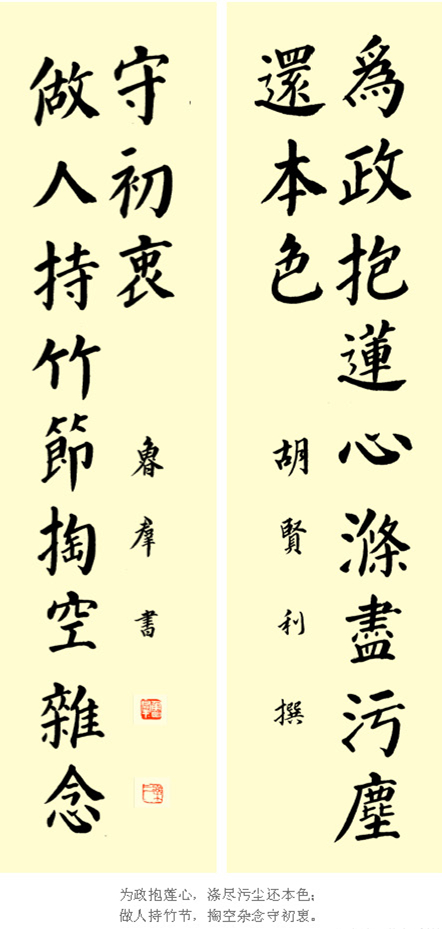 爲政抱蓮心滌盡污塵
還本色
胡賢利撰
做人持竹節掏空雜念
守初衷
魯羣書
为政抱莲心，涤尽污尘还本色；
做人持竹节，掏空杂念守初衷。